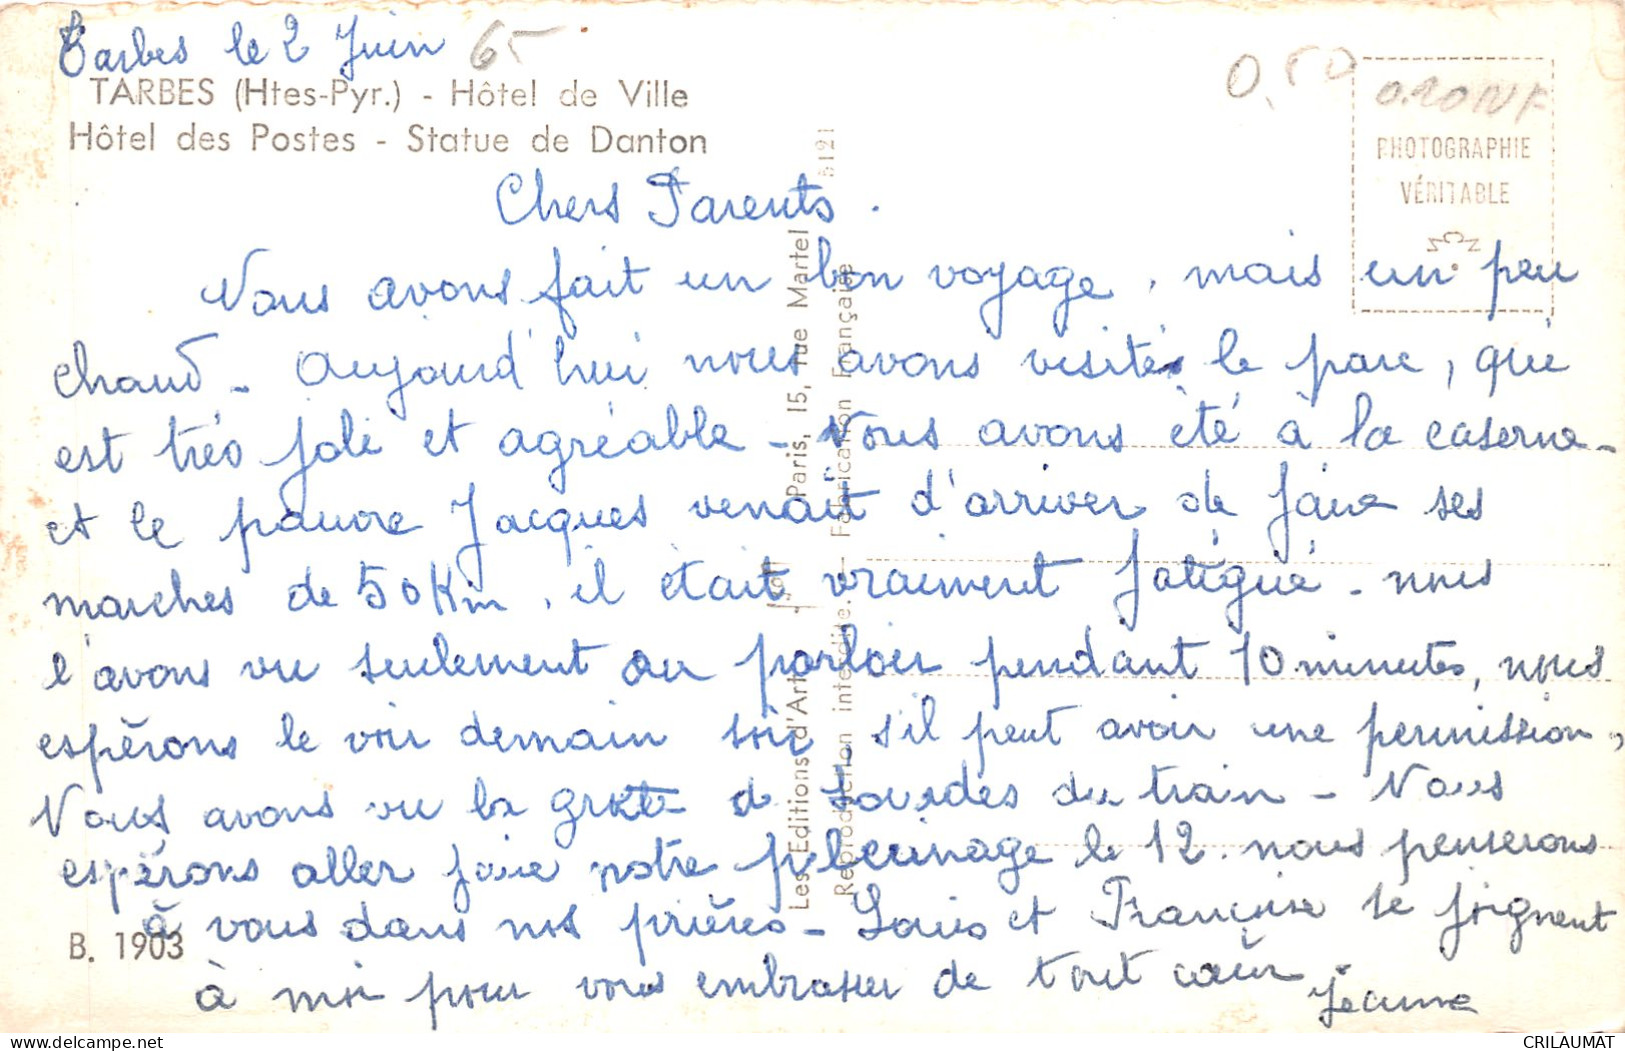 Tarbes le 2 Juin 65
0,50
0.20 NF
TARBES (Htes-Pyr.) - Hôtel de Ville
Hôtel des Postes - Statue de Danton
PHOTOGRAPHIE
VÉRITABLE
Chers Parents.
Nous avons fait un bon voyage, mais un peu
chaud - Aujourd'hui nous avons visités le parc, qui
est très joli et agréable - Nous avons été à la caserne -
et le pauvre Jacques venait d'arriver de faire ses
marches de 50 Km, il était vraiment fatigué - nous
l'avons vu seulement au parloir pendant 10 minutes, nous
espérons le voir demain soir s'il peut avoir une permission,
Nous avons vu la grotte de Lourdes du train - Nous
espérons aller faire notre pélerinage le 12. nous penserons
à vous dans nos prières - Louis et Françoise se joignent
à moi pour vous embrasser de tout cœur.
Jeanne
B. 1903
Les Editions d'Art Paris, 15, rue Martel 5121
Reproduction interdite. - Fabrication Française
CRILAUMAT